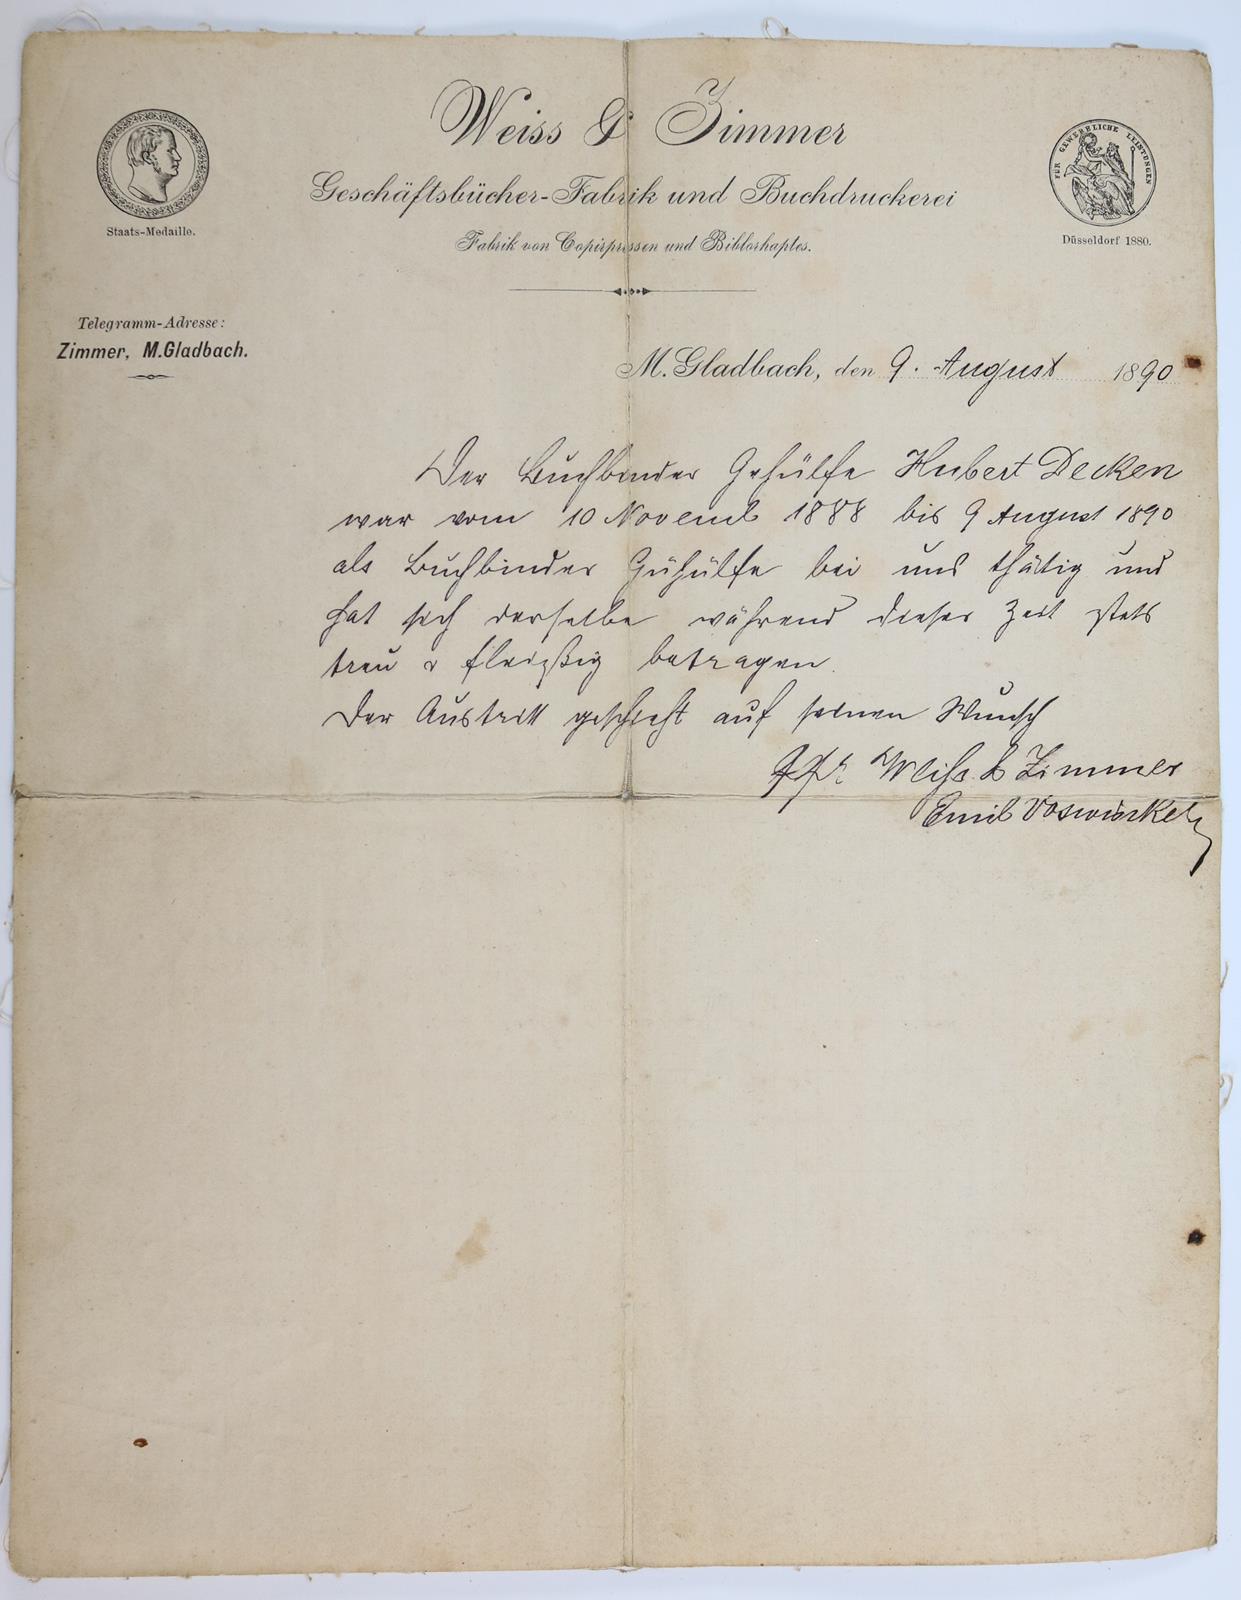 Weiss & Zimmer
Geschäftsbücher-Fabrik und Buchdruckerei
Fabrik von Copirpressen und Biblorhaptes.
Staats-Medaille.
FÜR GEWERBLICHE LEISTUNGEN
Düsseldorf 1880.
Telegramm-Adresse:
Zimmer, M.Gladbach.
M. Gladbach, den 9. August 1890
Der Buchbinder Gehülfe Hubert Decken
war vom 10 Novemb 1888 bis 9 August 1890
als Buchbinder Gehülfe bei uns thätig und
hat sich derselbe während dieser Zeit stets
treu & fleißig betragen.
Der Austritt geschieht auf seinen Wunsch
ppr Weiss & Zimmer
Emil Voswinkel